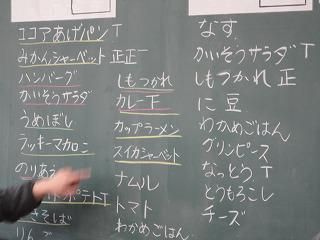 ココアあげパン T
みかんシャーベット 正正一
ハンバーグ
かいそうサラダ
うめぼし
ラッキーマカロニ
のりあえ
ポテト T
きそば
りんご
しもつかれ
カレー 下
カップラーメン
スイカシャーベット
ナムル
トマト
わかめごはん
なす
かいそうサラダ T
しもつかれ 正
に豆
わかめごはん
グリンピース
なっとう T
とうもろこし
チーズ